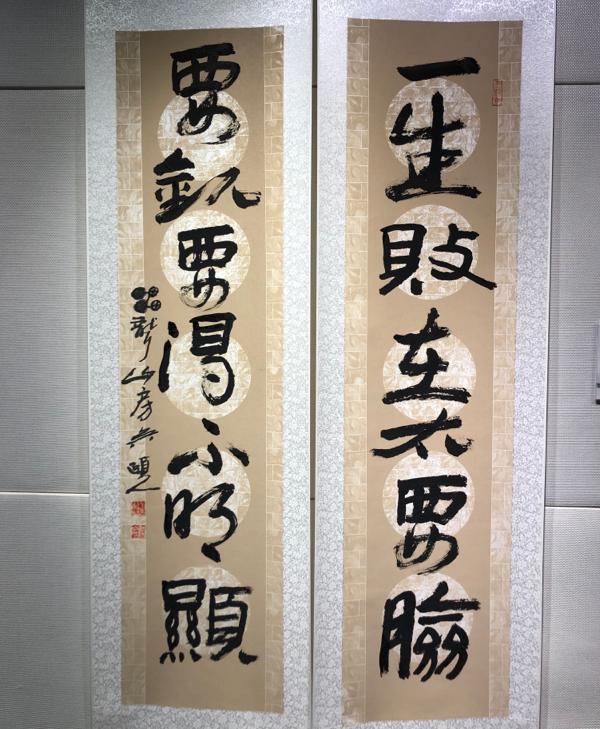 一生敗在不要臉
要飢要渴不明顯
龍山房